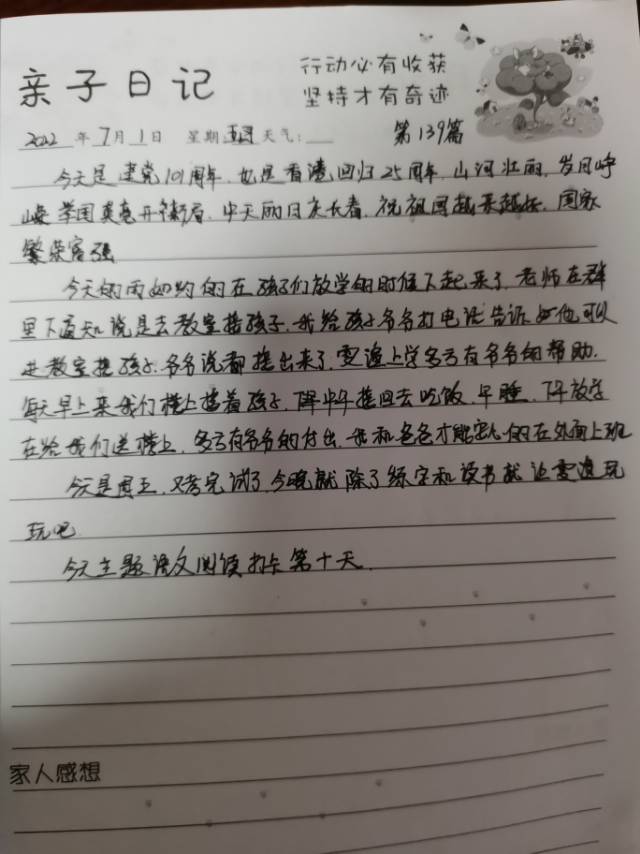 亲子日记
行动必有收获
坚持才有奇迹
2022年7月1日 星期五 天气:
第139篇
今天是建党101周年,也是香港回归25周年,山河壮丽,岁月峥
嵘,举国英豪开新局,中天丽日庆长春,祝祖国越来越好,国家
繁荣富强
今天的雨如约的在孩子们放学的时候下起来了,老师在群
里下通知说是去教室接孩子,我给孩子爷爷打电话告诉他可以
进教室接孩子,爷爷说都接出来了,雯漫上学多亏有爷爷的帮助,
每天早上来我们楼上接着孩子,中午接回去吃饭,午睡,下午放学
在给我们送楼上,多亏有爷爷的付出,我和爸爸才能安心的在外面上班
今天是周五,又考完试了,今晚就除了练字和读书就让雯漫玩
玩吧
今天主题语文阅读打卡第十天.
家人感想